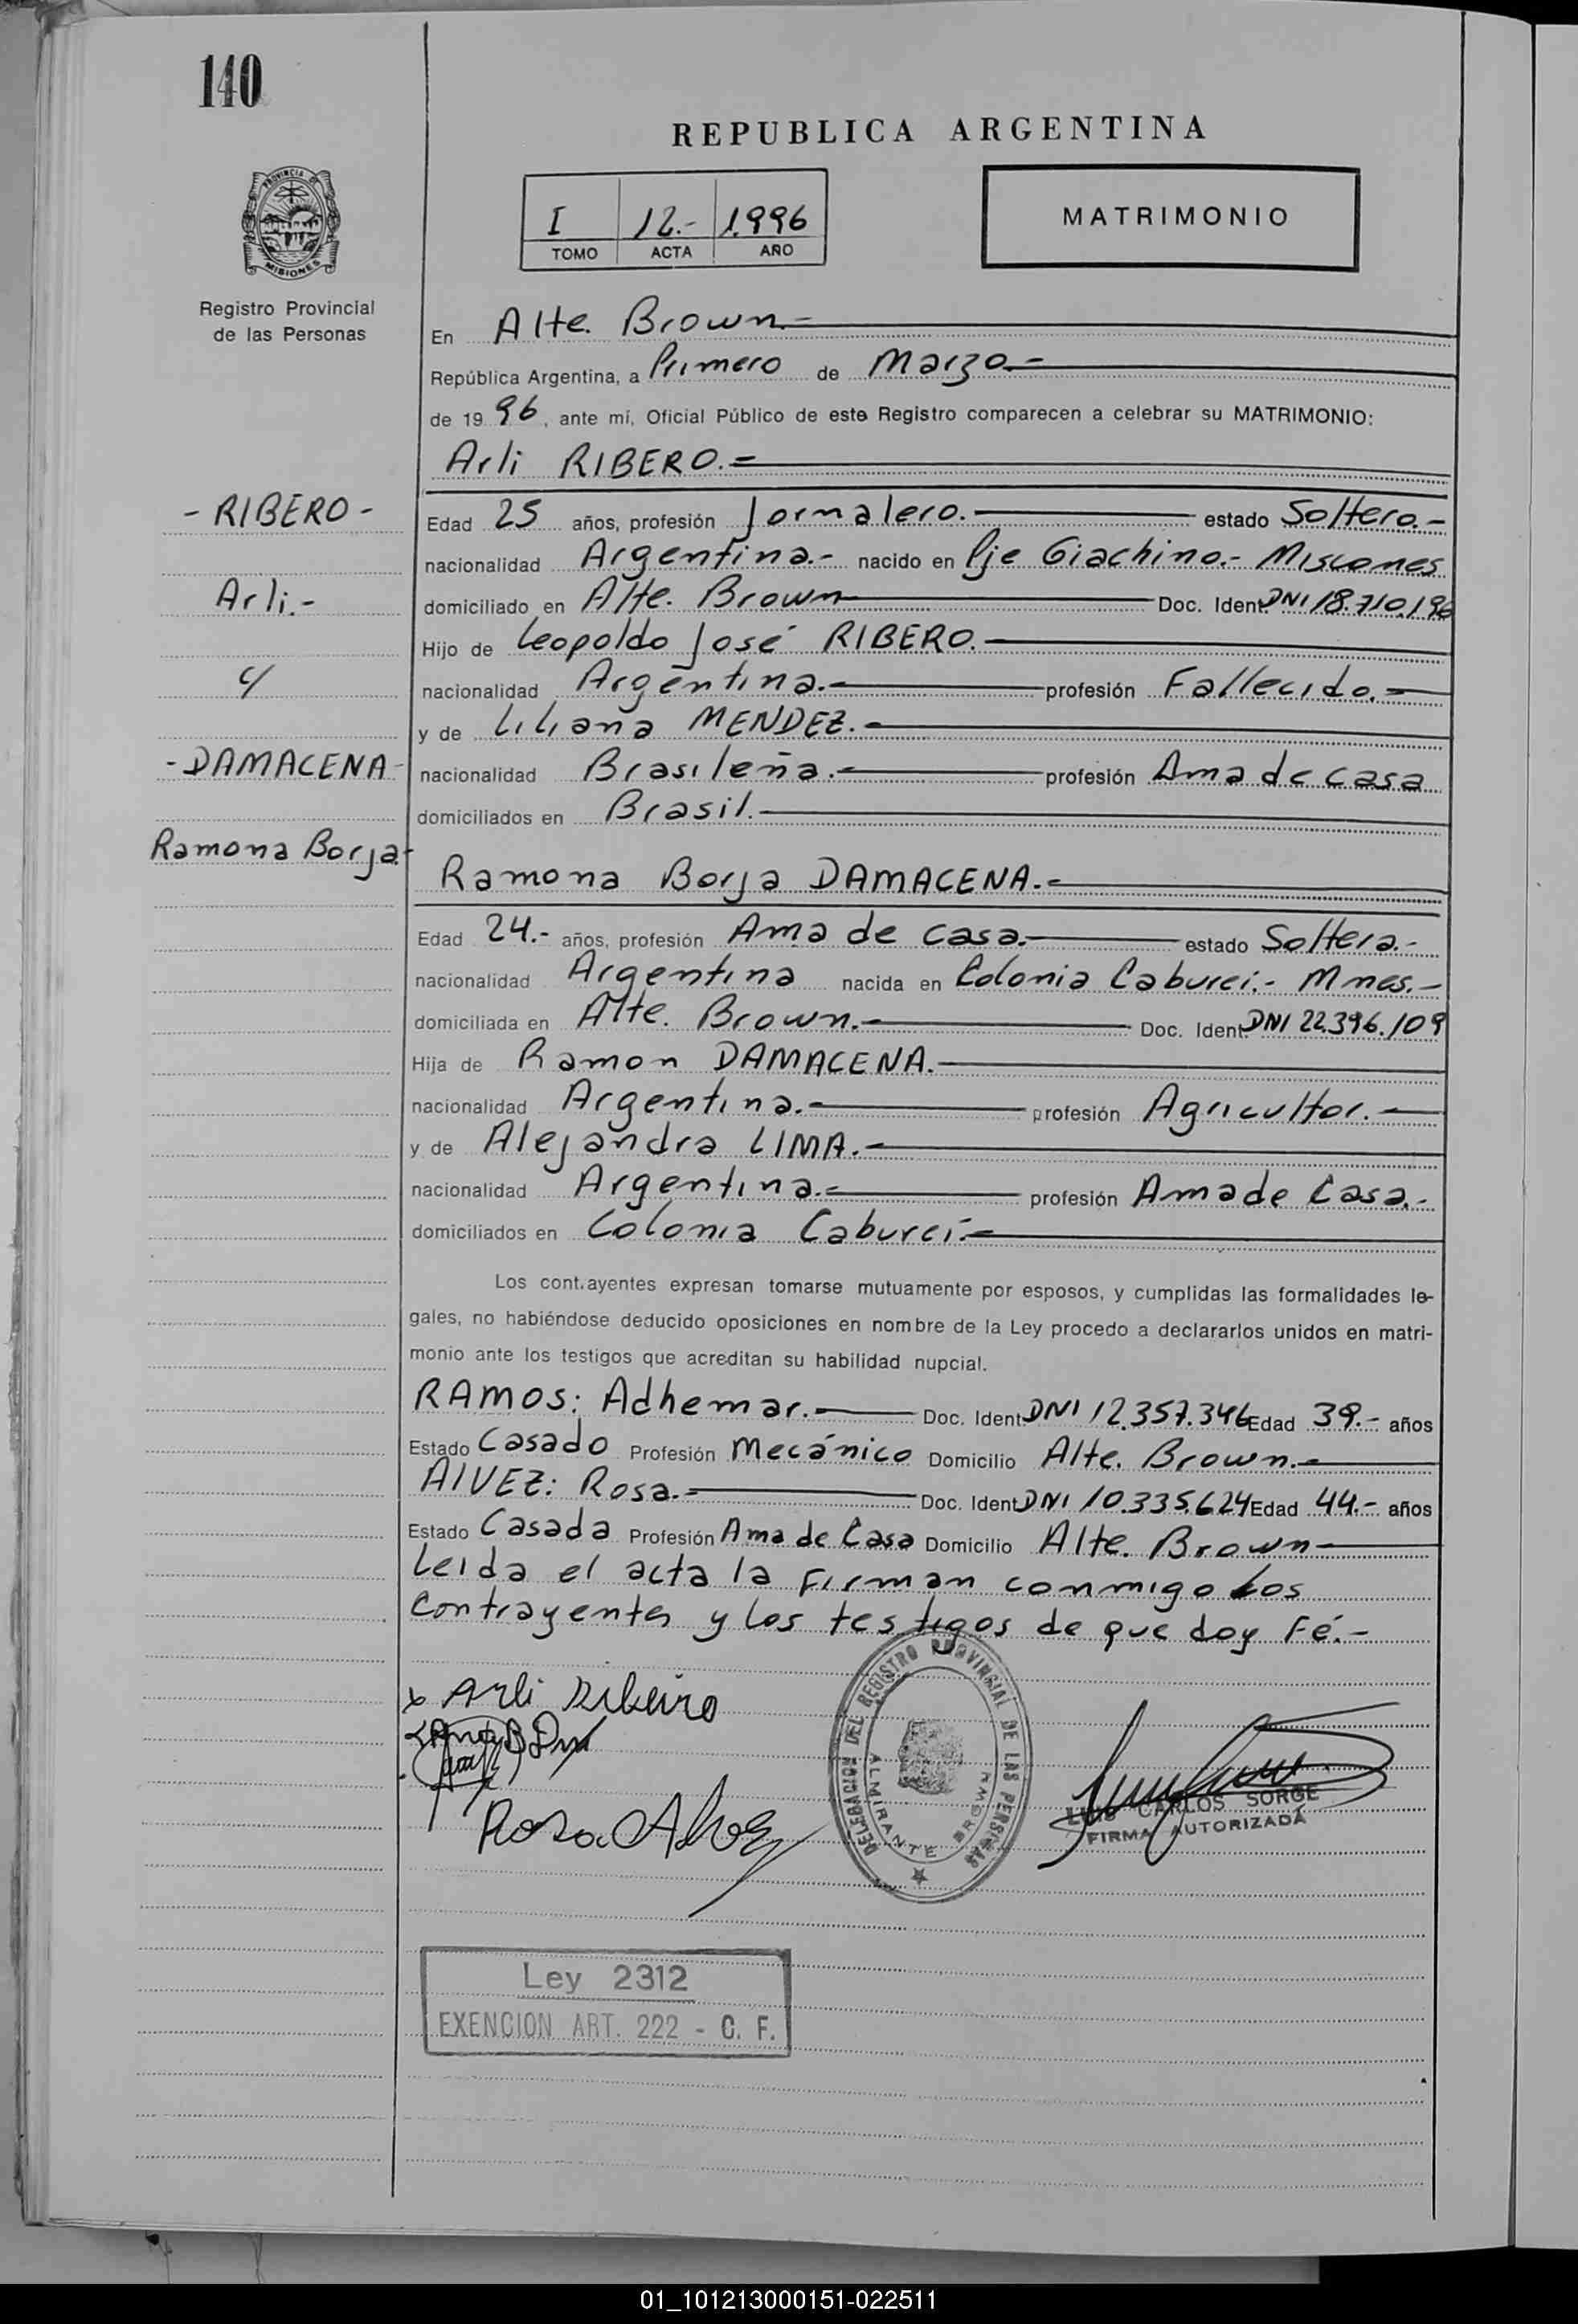 140
REPUBLICA ARGENTINA
PROVINCIA DE
MISIONES
I 12.- 1.996
TOMO ACTA AÑO
MATRIMONIO
Registro Provincial
de las Personas
En Alte. Brown.-
República Argentina, a Primero de Marzo.-
de 19 96, ante mí, Oficial Público de este Registro comparecen a celebrar su MATRIMONIO:
Arli RIBERO.=
- RIBERO -
Edad 25 años, profesión Jornalero.- estado Soltero.-
nacionalidad Argentina.- nacido en Pje Giachino.- Misiones
Arli.-
domiciliado en Alte. Brown Doc. Ident. DNI 18.710.196
Hijo de Leopoldo José RIBERO.-
c/
nacionalidad Argentina.- profesión Fallecido.-
y de Liliana MENDEZ.-
-DAMACENA-
nacionalidad Brasileña.- profesión Ama de casa
domiciliados en Brasil.-
Ramona Borja.-
Ramona Borja DAMACENA.-
Edad 24.- años, profesión Ama de casa.- estado Soltera.-
nacionalidad Argentina nacida en Colonia Caburei.- Mnes.-
domiciliada en Alte. Brown.- Doc. Ident. DNI 22.396.109
Hija de Ramon DAMACENA.-
nacionalidad Argentina.- profesión Agricultor.-
y de Alejandra LIMA.-
nacionalidad Argentina.- profesión Ama de Casa.-
domiciliados en Colonia Caburei.-
Los contrayentes expresan tomarse mutuamente por esposos, y cumplidas las formalidades le-
gales, no habiéndose deducido oposiciones en nombre de la Ley procedo a declararlos unidos en matri-
monio ante los testigos que acreditan su habilidad nupcial.
RAMOS: Adhemar.- Doc. Ident. DNI 12.357.346 Edad 39.- años
Estado Casado Profesión Mecánico Domicilio Alte. Brown.-
AlVEZ: Rosa.- Doc. Ident. DNI 10.335.624 Edad 44.- años
Estado Casada Profesión Ama de Casa Domicilio Alte. Brown-
Leida el acta la Firman conmigo Los
Contrayentes y los testigos de que doy Fé.-
x Arli Ribeiro
Rosa Alvez
DELEGACION DEL REGISTRO PROVINCIAL DE LAS PERSONAS
ALMIRANTE BROWN
LUIS CARLOS SORGE
FIRMA AUTORIZADA
Ley 2312
EXENCION ART. 222 - C. F.
01_101213000151-022511